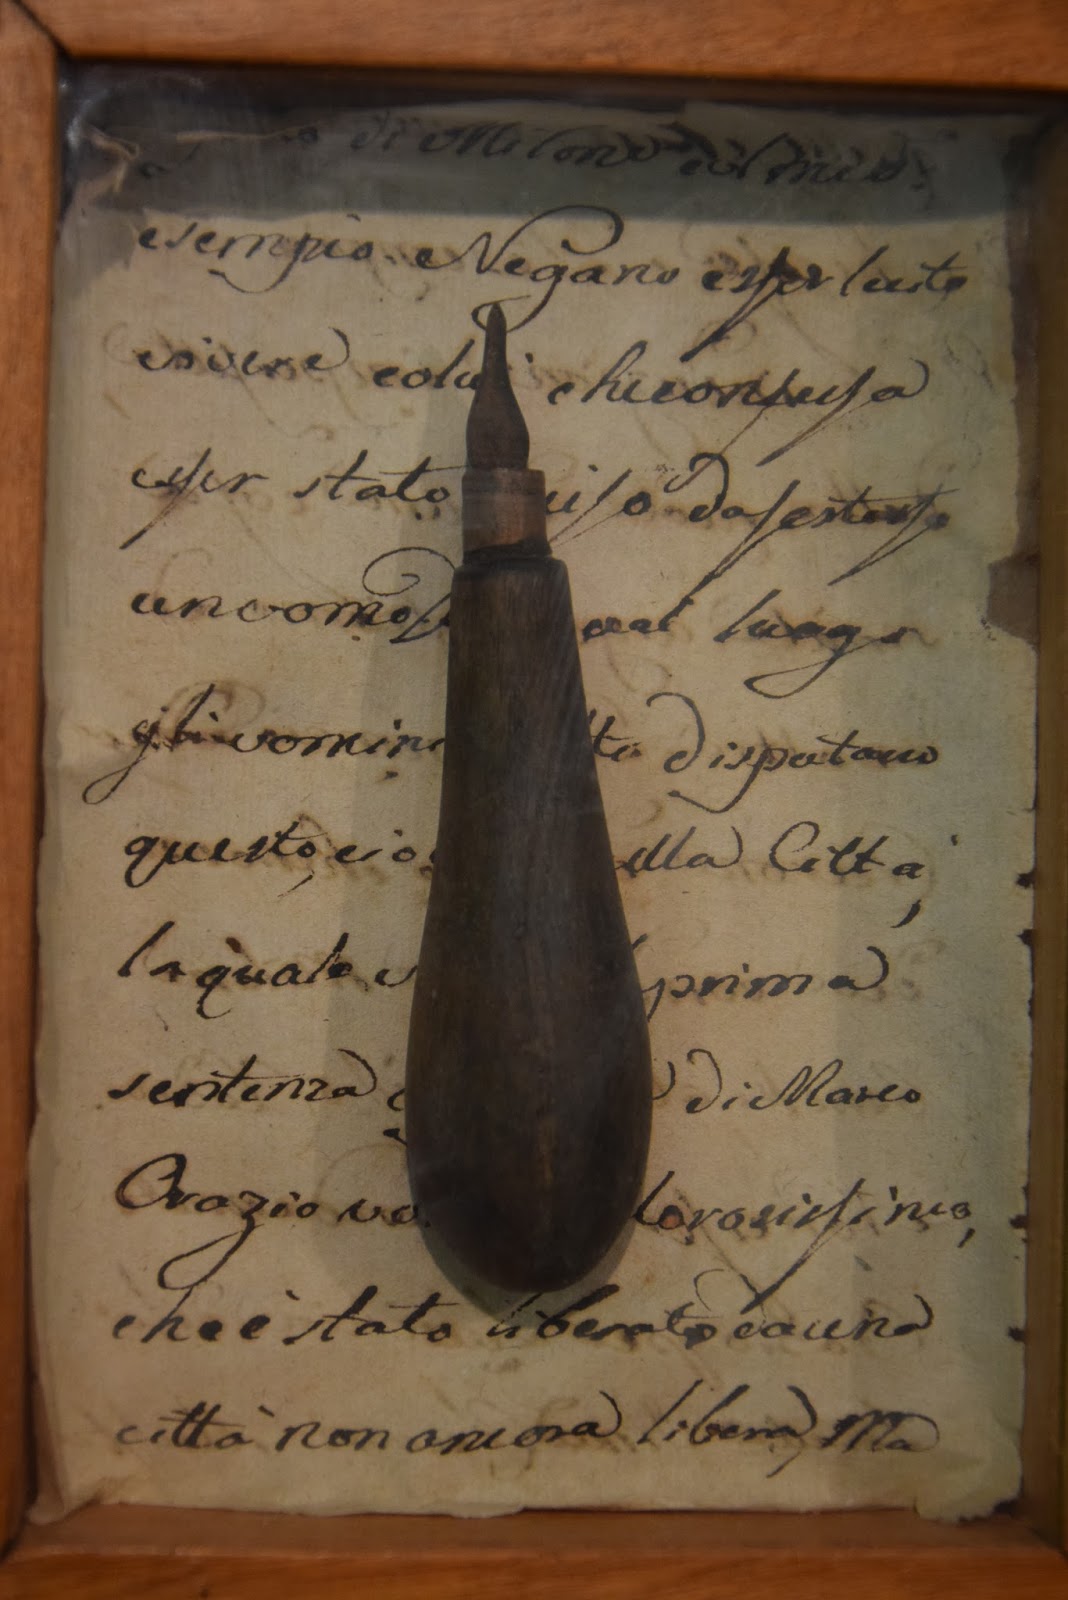 di Milone col mio
esempio. Negano esser lecito
vivere colui che confessa
esser stato uiso da se stesso
un uomo qual luogo
gli uomini disputano
questo, cio ella Città,
la quale prima
sentenza di Marco
Orazio uo lorosissimo,
che è stato liberato da una
città non ancora libera, Ma